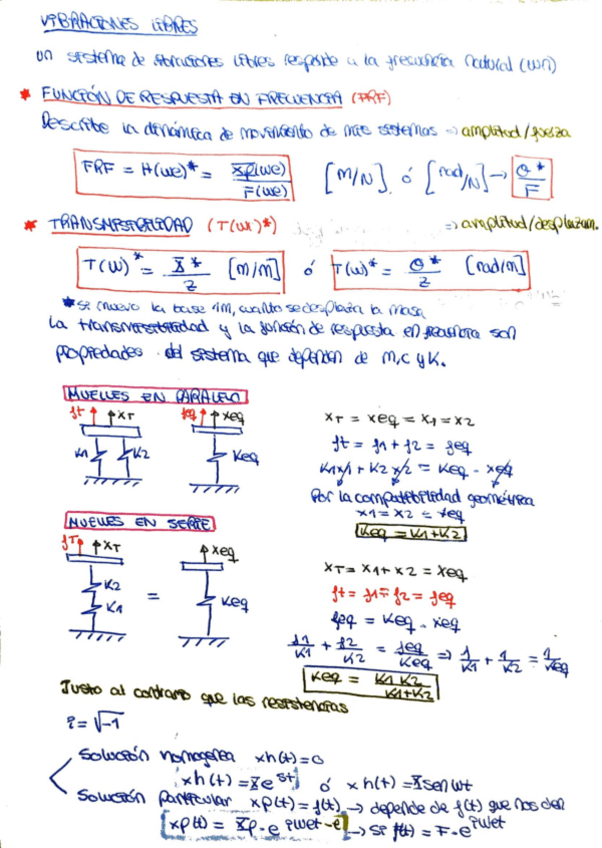 VIBRACIONES LIBRES
un sistema de vibraciones libres responde a la frecuencia natural (wn)
* FUNCIÓN DE RESPUESTA EN FRECUENCIA (FRF)
Describe la dinámica de movimiento de mis sistemas => amplitud/fuerza
FRF = H(we)* = Xp(we) / F(we) [m/N] ó [rad/N] → θ* / F
* TRANSMISIBILIDAD (T(w)*) => amplitud/desplazam.
T(w)* = X* / z [m/m] ó T(w)* = θ* / z [rad/m]
* si muevo la base 1m, cuanto se desplaza la masa
La transmisibilidad y la función de respuesta en frecuencia son
propiedades del sistema que dependen de m, c y K.
MUELLES EN PARALELO
ft xT feq xeq
K1 K2 Keq
xT = xeq = x1 = x2
ft = f1 + f2 = feq
K1x1 + K2x2 = Keq · xeq
Por la compatibilidad geométrica
x1 = x2 = xeq
Keq = K1+K2
MUELLES EN SERIE
fT xT xeq
K2 K1 = Keq
xT = x1 + x2 = xeq
ft = f1 = f2 = feq
feq = Keq · xeq
f1/K1 + f2/K2 = feq/Keq => 1/K1 + 1/K2 = 1/Keq
Keq = K1 K2 / K1+K2
Justo al contrario que las resistencias
i = √-1
Solución homogenea xh(t) = 0
xh(t) = X e^st ó xh(t) = X sen wt
Solución particular xp(t) = f(t) → depende de f(t) que nos den
xp(t) = Xp · e^iwet-e → si f(t) = F · e^iwet